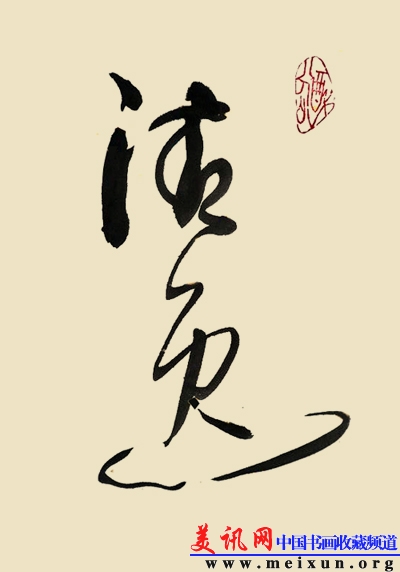 清逸
美讯网中国书画收藏频道
www.meixun.org